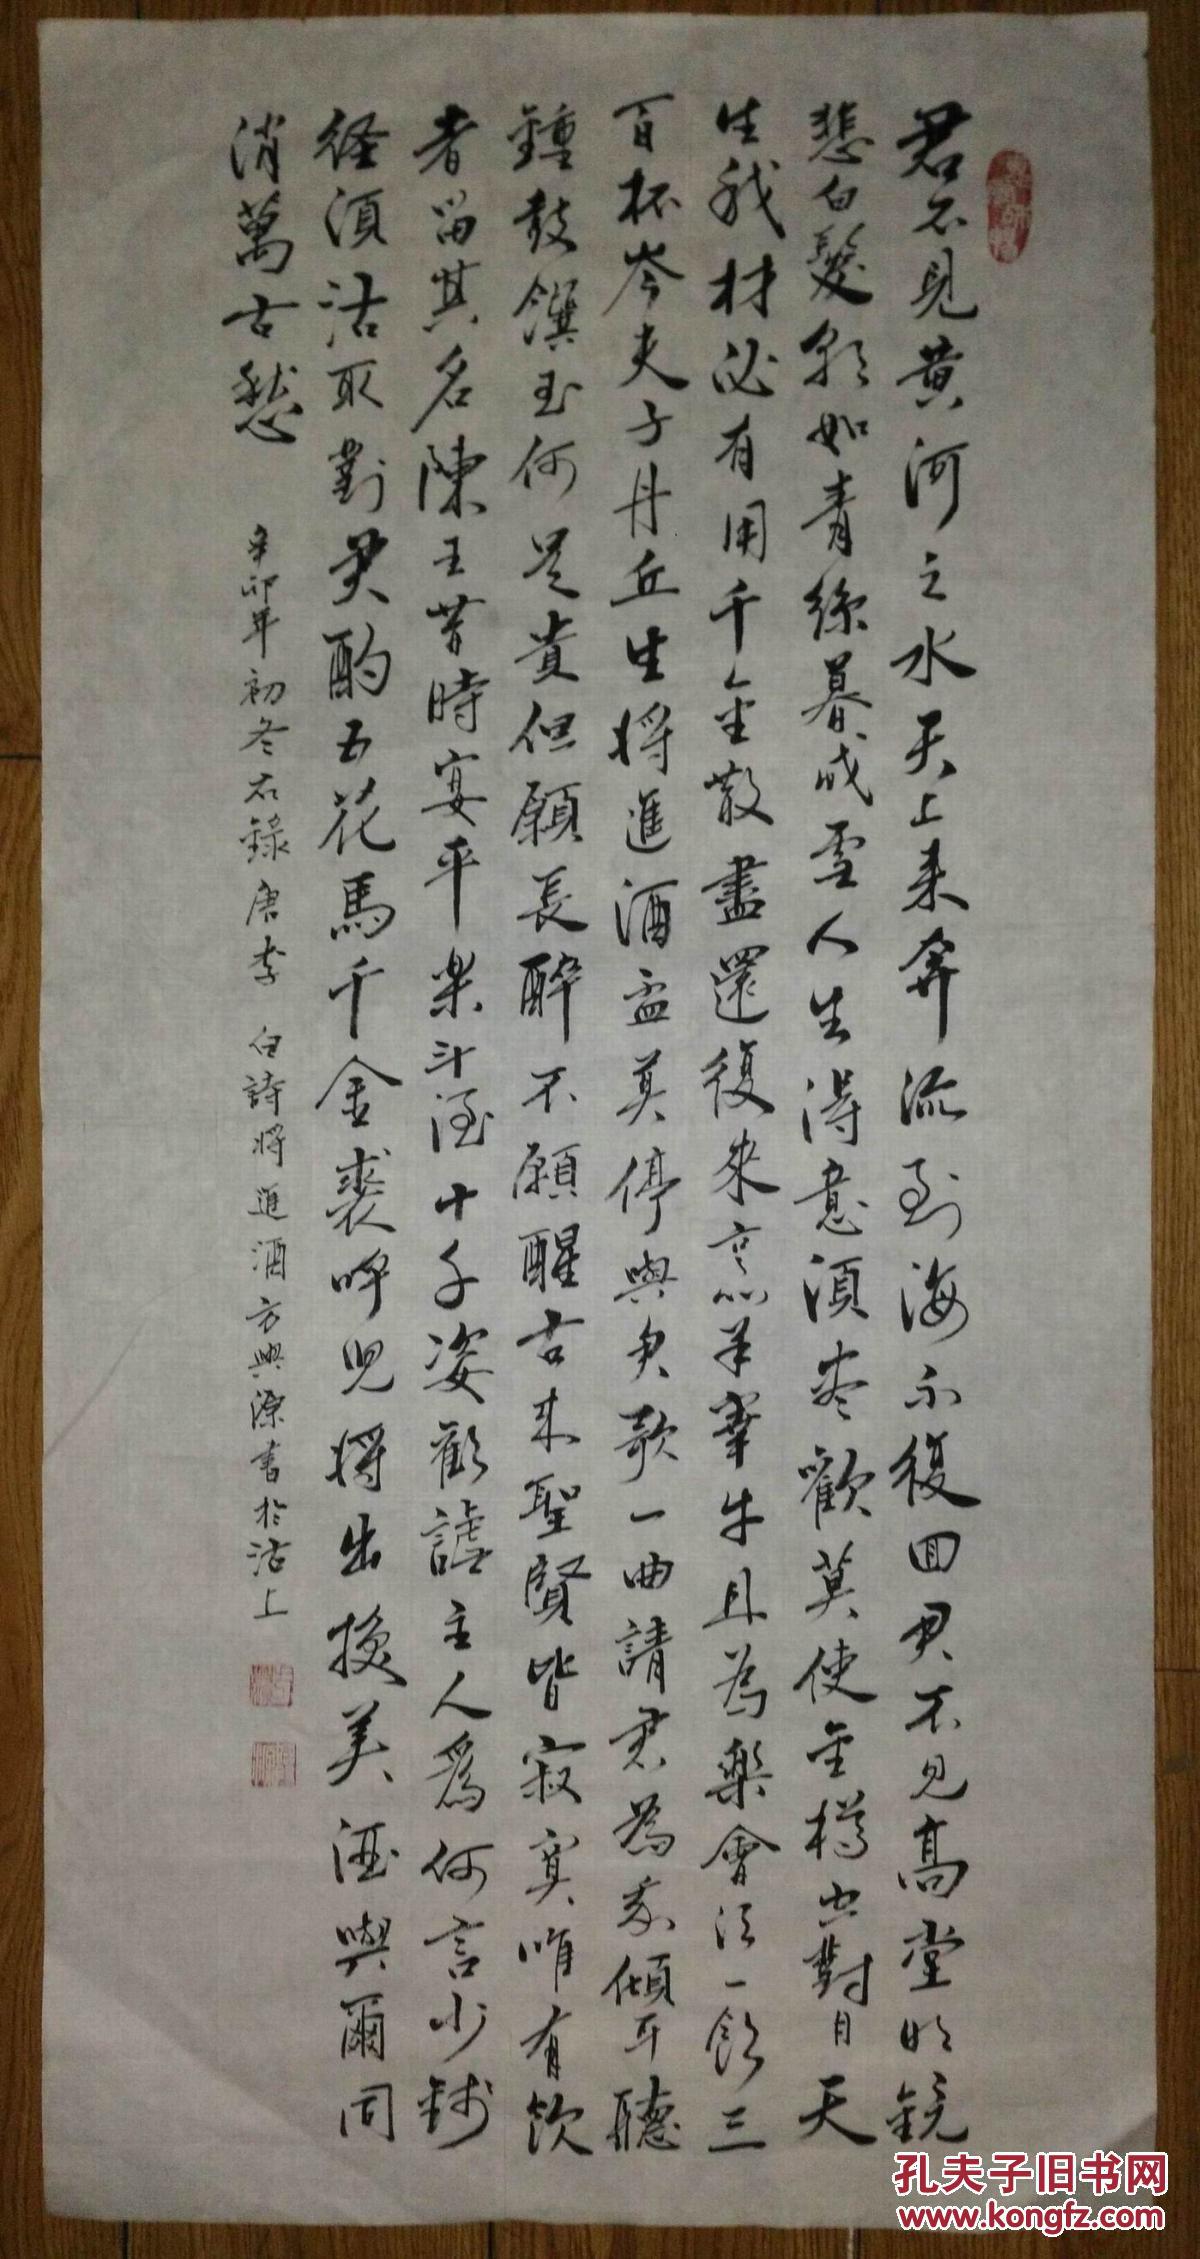 君不見黄河之水天上来奔流到海不復回君不見高堂明鏡
悲白髮朝如青絲暮成雪人生得意須盡歡莫使金樽空對月天
生我材必有用千金散盡還復來烹羊宰牛且為樂會須一飲三
百杯岑夫子丹丘生將進酒盃莫停與君歌一曲請君為我傾耳聽
鐘鼓饌玉何足貴但願長醉不願醒古来聖賢皆寂寞唯有飲
者留其名陳王昔時宴平楽斗酒十千恣歡謔主人爲何言少錢
径須沽取對君酌五花馬千金裘呼児將出換美酒與爾同
消萬古愁
辛卯年初冬右錄唐李白詩將進酒方興源書於沽上
孔夫子旧书网
www.kongfz.com